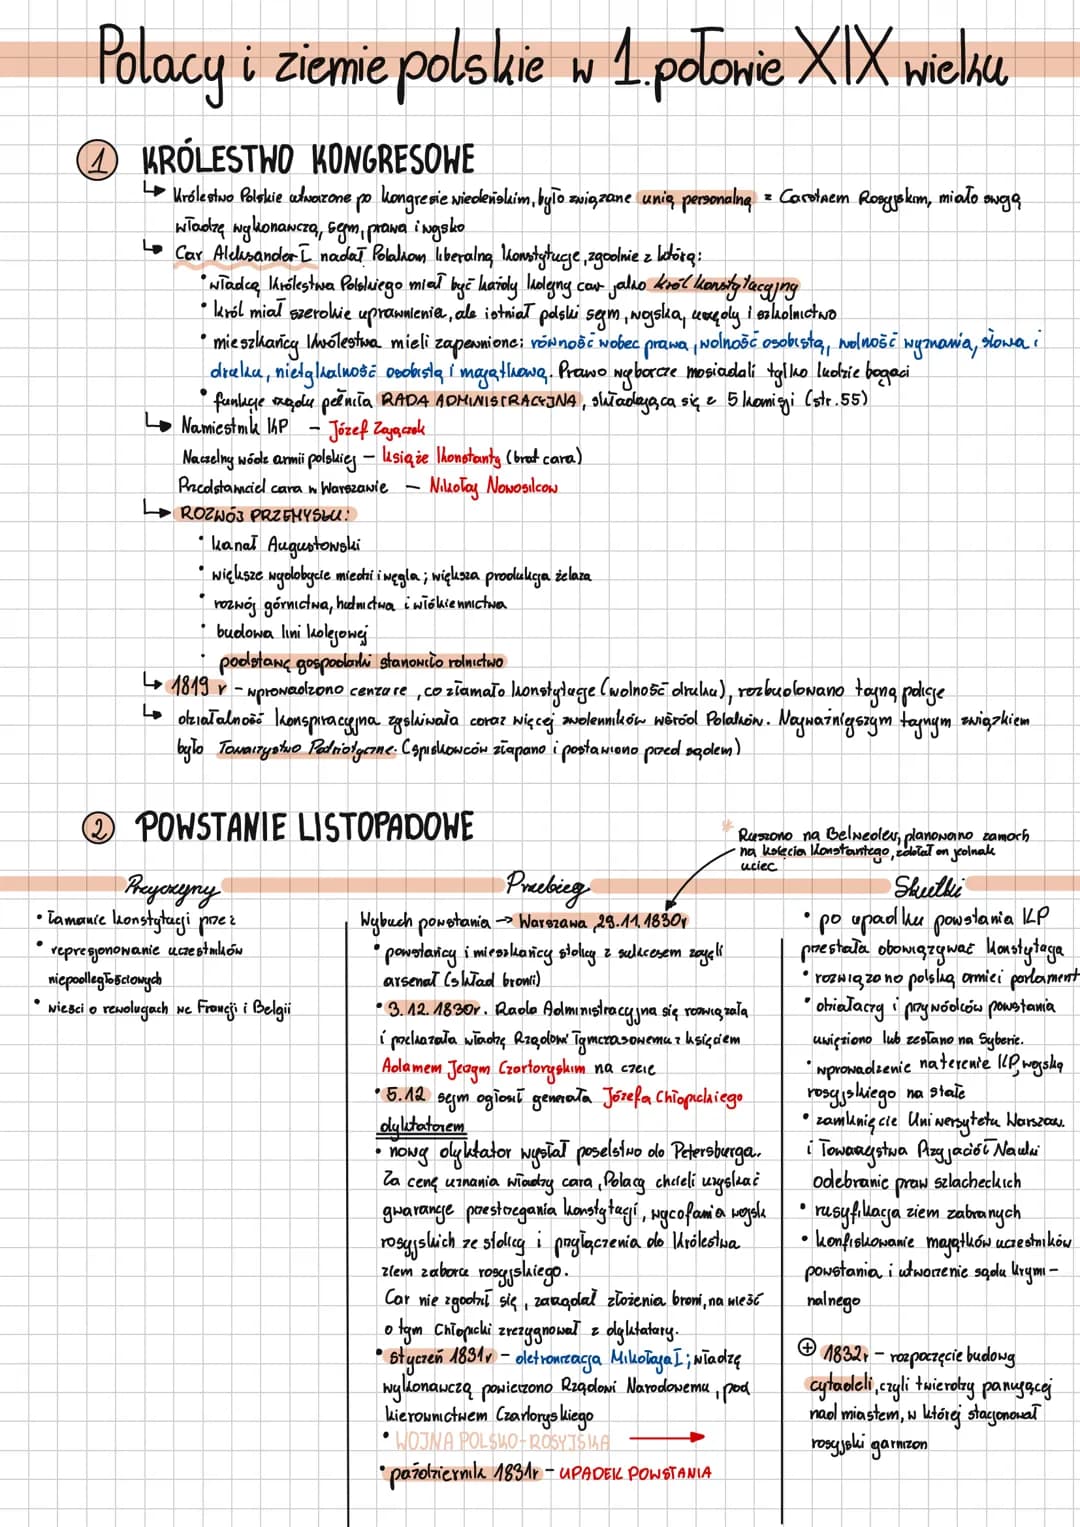 Polacy i ziemie polskie w 1. połowie XIX wieku
1 KRÓLESTWO KONGRESOWE
↳ Królestwo Polskie utworzone po kongresie wiedeńskim, było związane unią personalną z Caratem Rosyjskim, miało swoją
władzę wykonawczą, sejm, prawa i wojsko
↳ Car Aleksander I nadał Polakom liberalną konstytucję, zgodnie z którą:
• władcą Królestwa Polskiego miał być każdy kolejny car jako król konstytucyjny
• król miał szerokie uprawnienia, ale istniał polski sejm, wojska, urzędy i szkolnictwo
• mieszkańcy Królestwa mieli zapewnione: równość wobec prawa, wolność osobistą, wolność wyznania, słowa i
druku, nietykalność osobistą i majątkową. Prawo wyborcze posiadali tylko ludzie bogaci
• funkcje rządu pełniła RADA ADMINISTRACYJNA, składająca się z 5 komisji (str.55)
↳ Namiestnik KP – Józef Zajączek
Naczelny wódz armii polskiej – książe Konstanty (brat cara)
Przedstawiciel cara w Warszawie – Nikołaj Nowosilcow
↳ ROZWÓJ PRZEMYSŁU:
• kanał Augustowski
• większe wydobycie miedzi i węgla; większa produkcja żelaza
• rozwój górnictwa, hutnictwa i włókiennictwa
• budowa lini kolejowej
• podstawę gospodarki stanowiło rolnictwo
↳ 1819 r – wprowadzono cenzurę, co złamało konstytucję (wolność druku), rozbudowano tajną policję
↳ działalność konspiracyjna zyskiwała coraz więcej zwolenników wśród Polaków. Najważniejszym tajnym związkiem
było Towarzystwo Patriotyczne. (spiskowców złapano i postawiono przed sądem)
2 POWSTANIE LISTOPADOWE
* Ruszono na Belweder, planowano zamach
na księcia Konstantego, zdołał on jednak
uciec
Przyczyny
• łamanie konstytucji przez
• represjonowanie uczestników
niepodległościowych
• wieści o rewolucjach we Francji i Belgii
Przebieg
Wybuch powstania → Warszawa 29.11.1830r
• powstańcy i mieszkańcy stolicy z sukcesem zajęli
arsenał (skład broni)
• 3.12.1830r. Rada Administracyjna się rozwiązała
i przekazała władzę Rządowi Tymczasowemu z księciem
Adamem Jerzym Czartoryskim na czele
• 5.12 sejm ogłosił generała Józefa Chłopickiego
dyktatorem
• nowy dyktator wysłał poselstwo do Petersburga.
Za cenę uznania władzy cara, Polacy chcieli uzyskać
gwarancje przestrzegania konstytucji, wycofania wojsk
rosyjskich ze stolicy i przyłączenia do Królestwa
ziem zaboru rosyjskiego.
Car nie zgodził się, zażądał złożenia broni, na wieść
o tym Chłopicki zrezygnował z dyktatury.
• styczeń 1831r – detronizacja Mikołaja I; władzę
wykonawczą powierzono Rządowi Narodowemu, pod
kierownictwem Czartoryskiego
• WOJNA POLSKO-ROSYJSKA →
• październik 1831r – UPADEK POWSTANIA
Skutki
• po upadku powstania KP
przestała obowiązywać konstytucja
• rozwiązano polską armię i parlament
• działaczy i przywódców powstania
uwięziono lub zesłano na Syberie.
• wprowadzenie na terenie KP, wojska
rosyjskiego na stałe
• zamknięcie Uniwersytetu Warszaw.
i Towarzystwa Przyjaciół Nauki
odebranie praw szlacheckich
• rusyfikacja ziem zabranych
• konfiskowanie majątków uczestników
powstania i utworzenie sądu krymi-
nalnego
⊕ 1832r – rozpoczęcie budowy
cytadeli, czyli twierdzy panującej
nad miastem, w której stacjonował
rosyjski garnizon